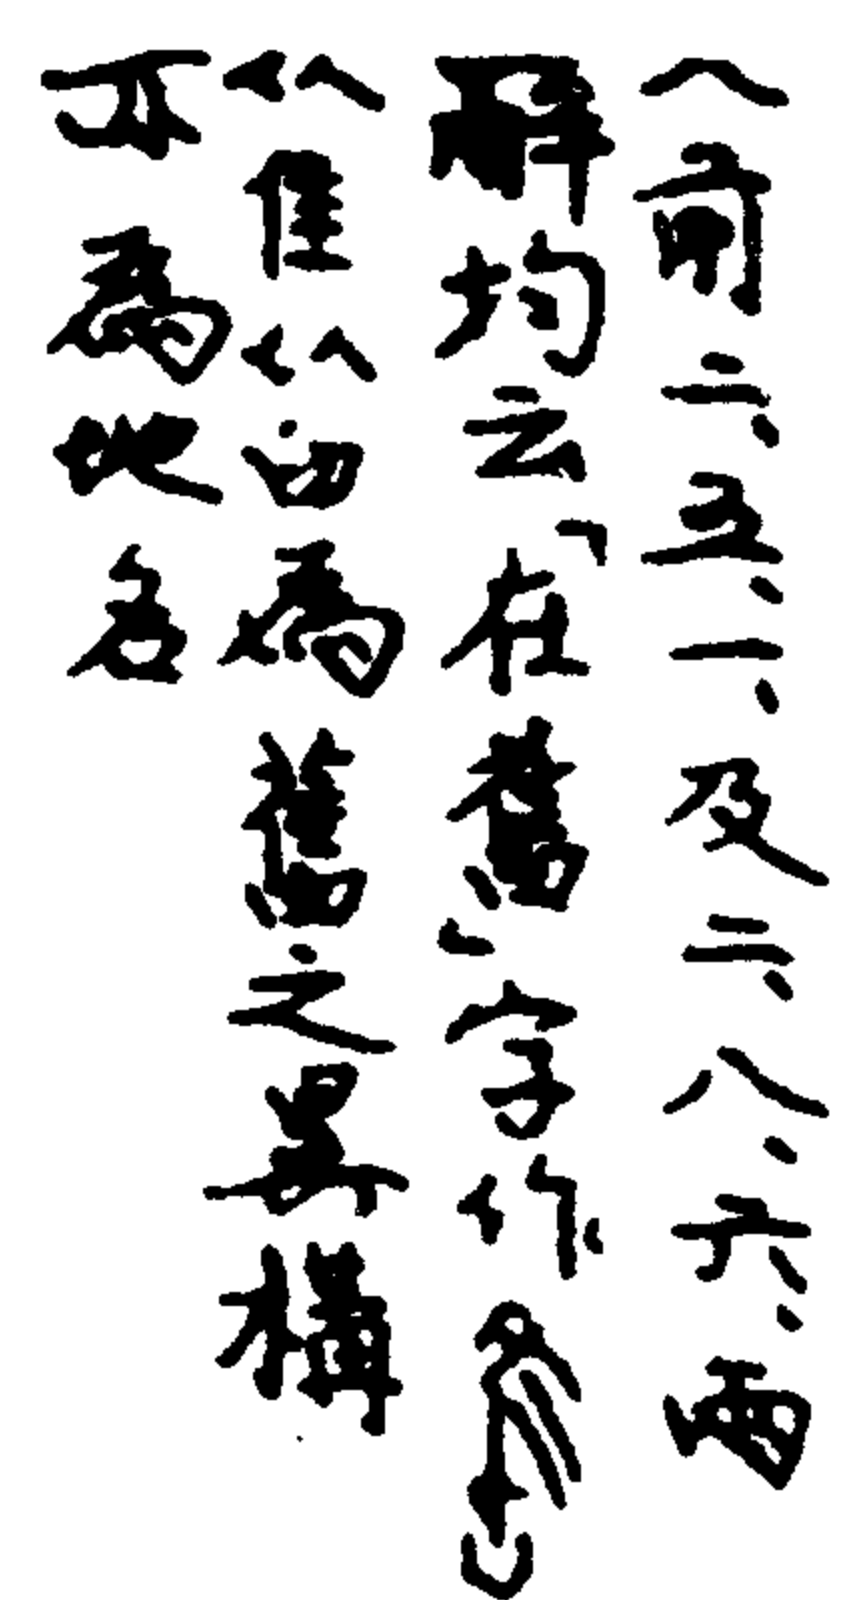 （前二、五、一、及二、八、六、兩
辭均云「在舊」字作
从隹从臼為舊之異構
亦為地名